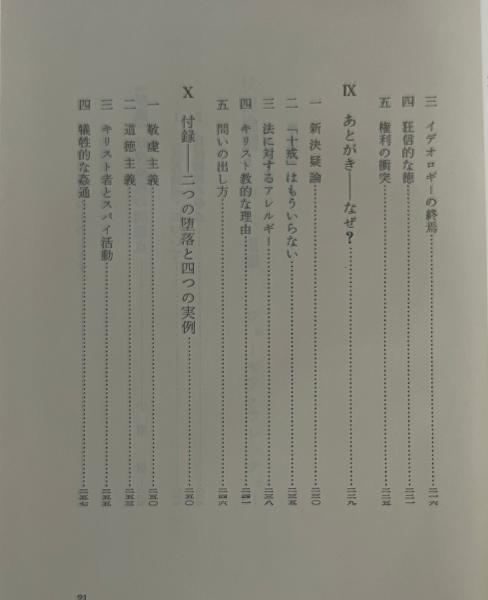 三 イデオロギーの終焉……二一六
四 狂信的な徳……二二一
五 権利の衝突……二二五
Ⅸ あとがき――なぜ?……二二九
一 新決疑論……二三〇
二 「十戒」はもういらない……二三五
三 法に対するアレルギー……二三八
四 キリスト教的な理由……二四一
五 問いの出し方……二四六
Ⅹ 付録――二つの堕落と四つの実例……二五〇
一 敬虔主義……二五〇
二 道徳主義……二五三
三 キリスト者とスパイ活動……二五五
四 犠牲的な姦通……二五七
21